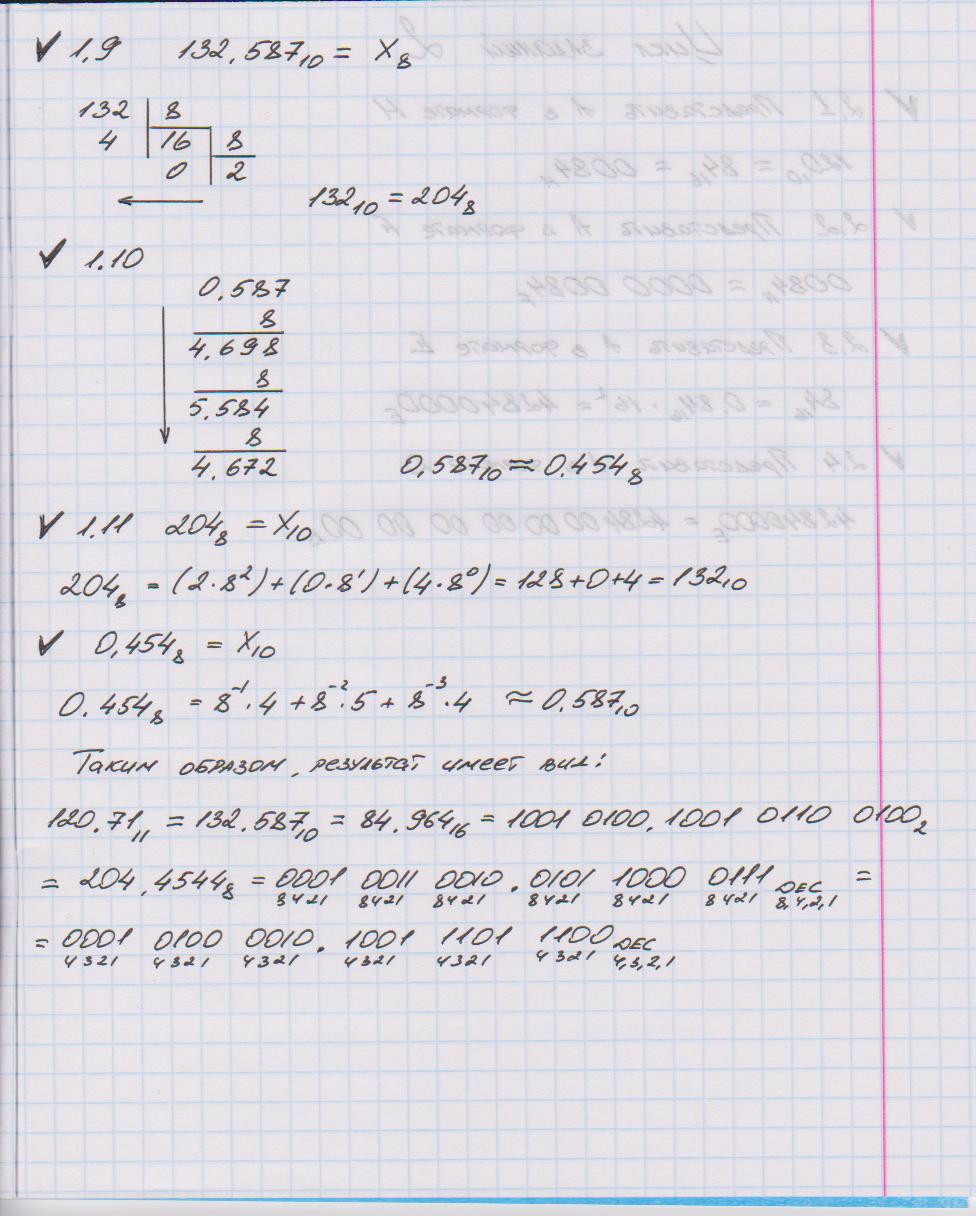 ✓ 1.9 132.587₁₀ = X₈
132 | 8
4 | 16 | 8
0 | 2
132₁₀ = 204₈
✓ 1.10
0.587
8
4.698
8
5.584
8
4.672 0,587₁₀ ≈ 0.454₈
✓ 1.11 204₈ = X₁₀
204₈ = (2·8²)+(0·8¹)+(4·8⁰) = 128+0+4 = 132₁₀
✓ 0,454₈ = X₁₀
0.454₈ = 8⁻¹·4 + 8⁻²·5 + 8⁻³·4 ≈ 0.587₁₀
Таким образом, результат имеет вид:
120.71₁₁ = 132.587₁₀ = 84.964₁₆ = 1001 0100.1001 0110 0100₂
= 204.4544₈ = 0001 0011 0010.0101 1000 0111 DEC =
8421 8421 8421 8421 8421 8421 8,4,2,1
= 0001 0100 0010.1001 1101 1100 DEC
4321 4321 4321 4321 4321 4321 4,3,2,1